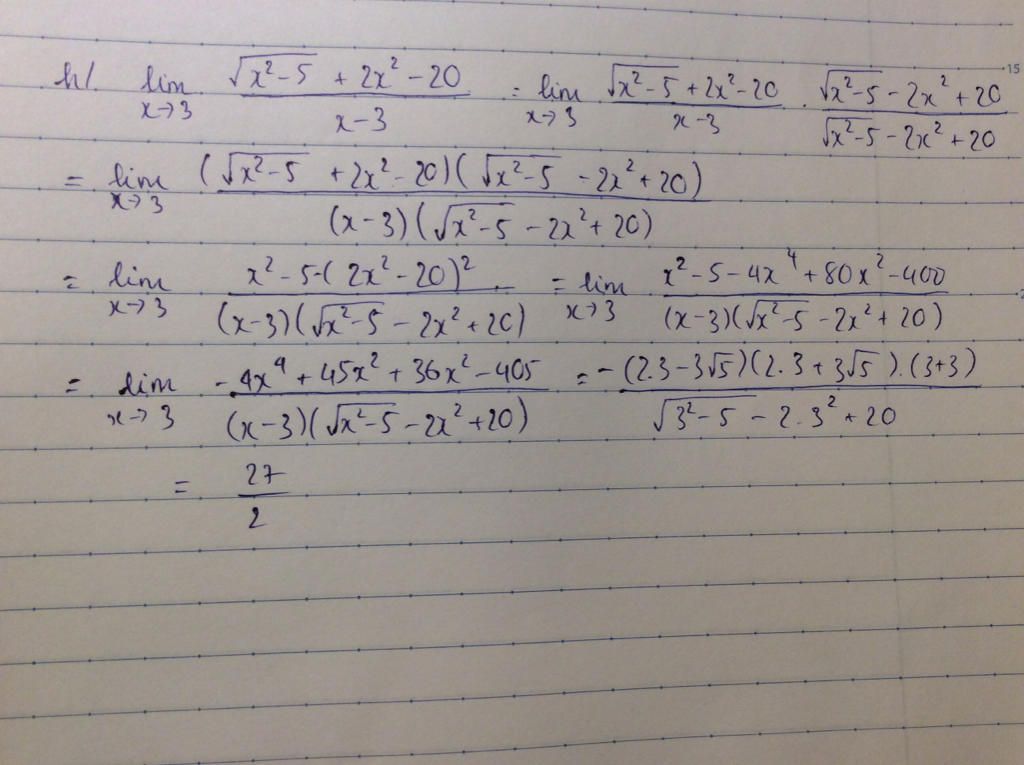 h/. lim x→3 (√(x²-5) + 2x² - 20)/(x-3) = lim x→3 (√(x²-5) + 2x² - 20)/(x-3) . (√(x²-5) - 2x² + 20)/(√(x²-5) - 2x² + 20)
15
= lim x→3 ((√(x²-5) + 2x² - 20)(√(x²-5) - 2x² + 20))/((x-3)(√(x²-5) - 2x² + 20))
= lim x→3 (x² - 5 - (2x² - 20)²)/((x-3)(√(x²-5) - 2x² + 20)) = lim x→3 (x² - 5 - 4x⁴ + 80x² - 400)/((x-3)(√(x²-5) - 2x² + 20))
= lim x→3 (-4x⁴ + 45x² + 36x² - 405)/((x-3)(√(x²-5) - 2x² + 20)) = (-(2.3 - 3√5)(2.3 + 3√5).(3+3))/(√(3²-5) - 2.3² + 20)
= 27/2